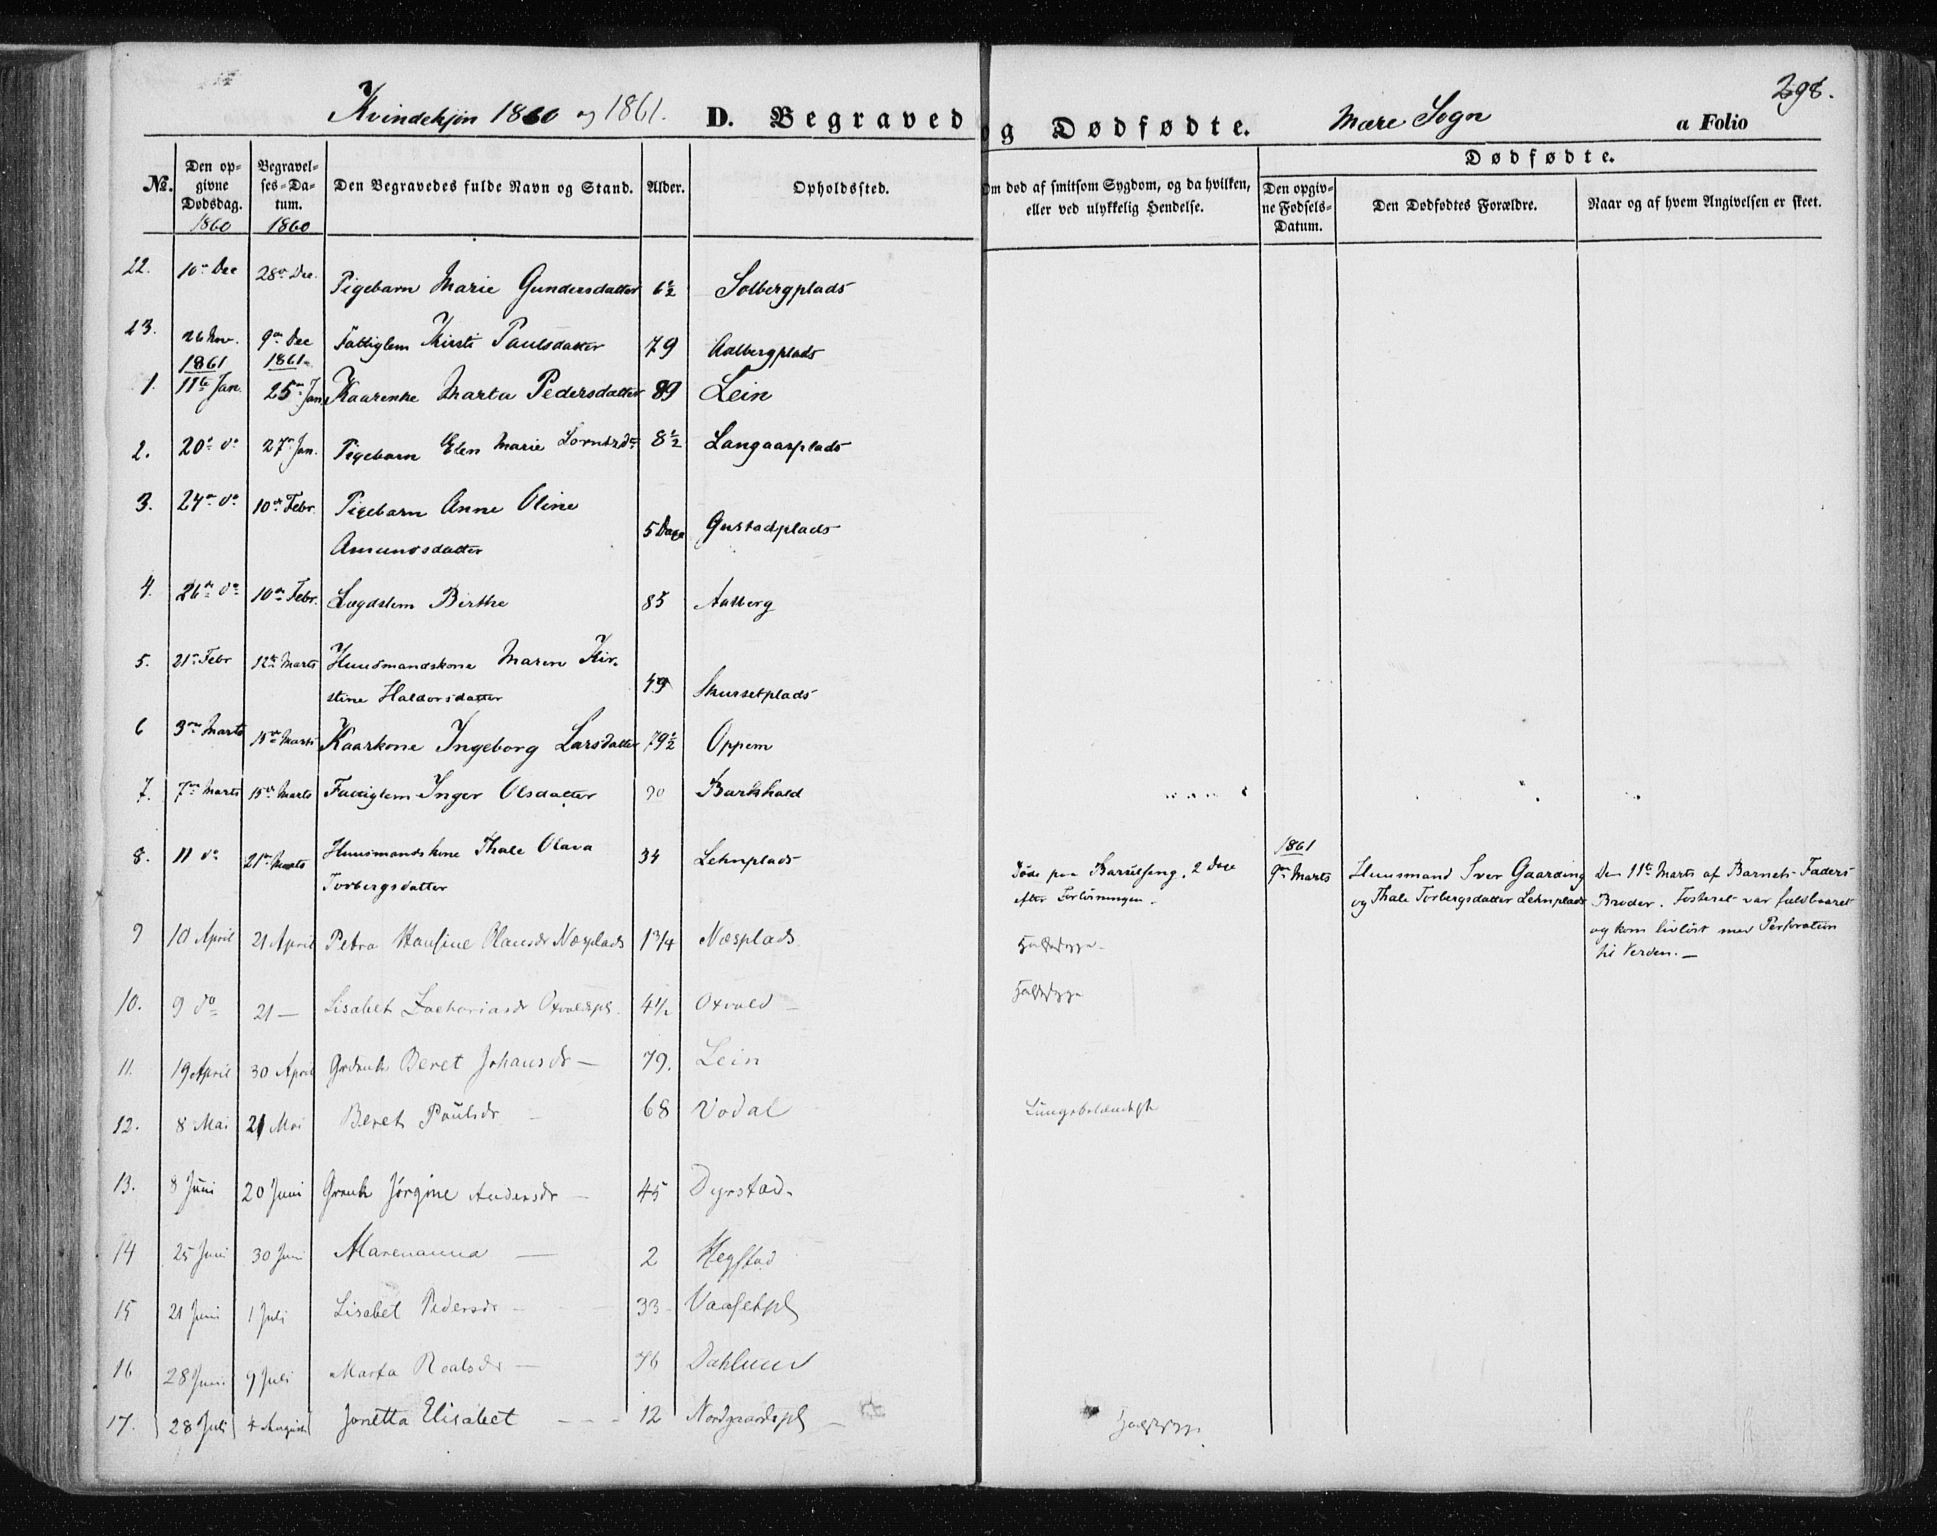 Kvindekjön 1860 og 1861. D. Begravede og Dødfødte. Mære Sogn a Folio 298.
Dødfødte.
No. Den opgivne Dødsdag. Begravelses-Datum. Den Begravedes fulde Navn og Stand. Alder. Opholdssted. Om død af smitsom Sygdom, og da hvilken, eller ved ulykkelig Hendelse. Den opgivne Fødsels-Datum. Den Dødfødtes Forældre. Naar og af hvem Angivelsen er skeet.
1860 1860
22. 10de Dec 28de Dec. Pigebarn Marie Gundersdatter 6½ Solbergplads
23. 26 Nov. 9de Dec Fattiglem Kirsti Paulsdatter 79 Aalbergplads
1861 1861
1. 11te Jan. 25de Jan Kaarenke Marta Pedersdatter 89 Lein
2. 20de do 27de Jan. Pigebarn Elen Marie Lorntzdr 8½ Langaasplads
3. 24de do 10de Febr. Pigebarn Anne Oline
Amundsdatter 5 Dage Gustadplads
4. 26de do 10de Febr. Lægdslem Birthe 85 Aalberg
5. 21de Febr 12te Marts Huusmandskone Maren Kir-
stine Haldorsdatter 49 Skursetplads
6 3de Marts 15de Marts Kaarkone Ingeborg Larsdatter 79½ Oppem
7. 7de Marts 15de Marts Fattiglem Inger Olsdatter 90 Barkhald
8. 11 do 21de Marts Huusmandskone Thale Olava
Torbergsdatter 34 Lehnplads
Døde paa Barselseng, 2 Dage
efter Forløsningen.
1861
9de Marts
Huusmand Sver Gaarding
og Thale Torbergsdatter Lehnplads
Den 11te Marts af Barnets Faders
Broder. Fosteret var fuldbaaret
og kom livløst med Perforation
til Verden.
9 10 April 21 April Petra Hansine Olausdr Næsplads 1 3/4 Næsplads Halssyge.
10. 9 do 21 — Lisabet Zachariasdr Oxvaldpl. 4½ Oxvald — Halssyge
11. 19 April 30 April Grdenk Beret Johansdr — 79. Lein
12. 8 Mai 21 Mai Beret Paulsdr — 68 Vodal Lungebetændelse
13. 8 Juni 20 Juni Grenk Jørgine Andersdr — 45 Dyrstad.
14 25 Juni 30 Juni Marenanna — 2 Hegstad
15 21 Juni 1 Juli Lisabet Pedersdr — 33 Vaasetpl
16 28 Juni 9 Juli Marta Roalsdr — 76 Dahlum
17. 28 Juli 4 August Jonetta Elisabet — — — 12 Nordgaardspl — Halssyge.